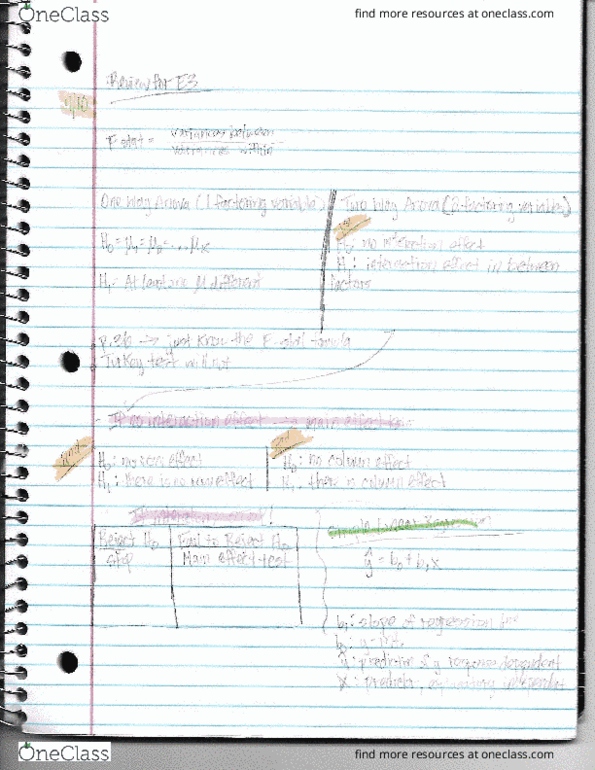 OneClass
find more resources at oneclass.com
Review for E3
F stat = variances between
variances within
One Way Anova (1 factoring variable)
H₀ = μ₁ = μ₂ = ... μₓ
H₁: At least one μ different
Two Way Anova (2 factoring variables)
1st
H₀: no interaction effect
H₁: interaction effect in between
factors
→ just know the F-stat formula
Tukey test will not
- If no interaction effect → main effect
2nd
H₀: no row effect
H₁: there is no row effect
2nd
H₀: no column effect
H₁: there is column effect
Reject H₀
Stop
Fail to Reject H₀
Main effect test
Simple Linear Regression
ŷ = b₀ + b₁x
b₁: slope of regression line
b₀: y-int.
ŷ: predictor of y response dependent
x: predictor, independent
OneClass
find more resources at oneclass.com